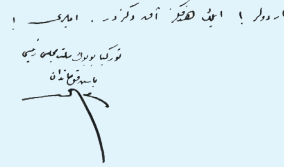 اردولر ! ايلك هدفكز آق دكزدر . ايلرى !
توركيا بويوك ملت مجلسى رئيسى
باش قوماندان